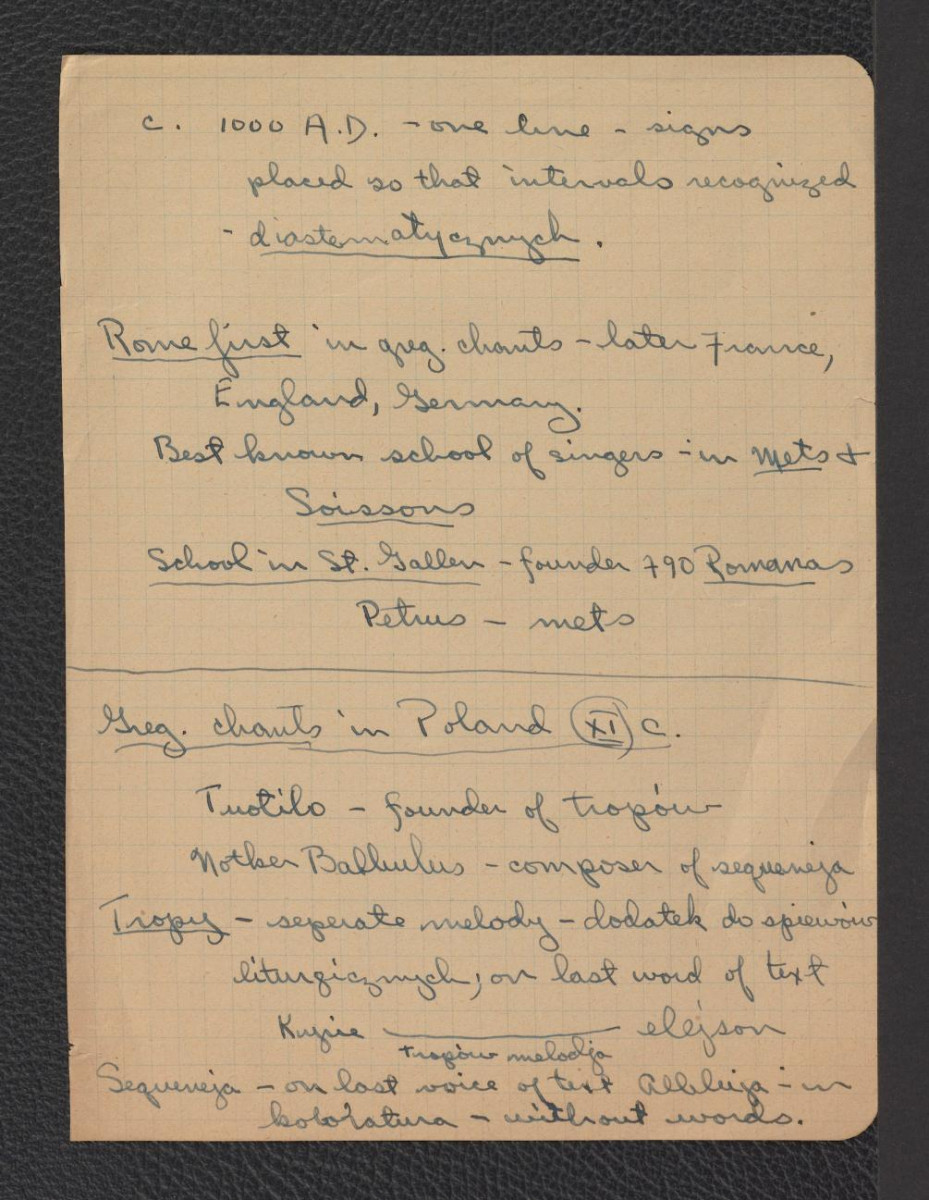 c. 1000 A.D. - one line - signs
placed so that intervals recognized
- diastematycznych.
Rome first in greg. chants - later France,
England, Germany.
Best known school of singers - in Mets &
Soissons
School in St. Gallen - founder 790 Romanas
Petrus - mets
Greg. chants in Poland XI c.
Tuotilo - founder of tropów
Notker Balbulus - composer of sequencja
Tropy - seperate melody - dodatek do spiewów
liturgicznych, on last word of text
Kyrie ——— elejson
tropów melodja
Sequencja - on last voice of text Alleluja - in
koloratura - without words.